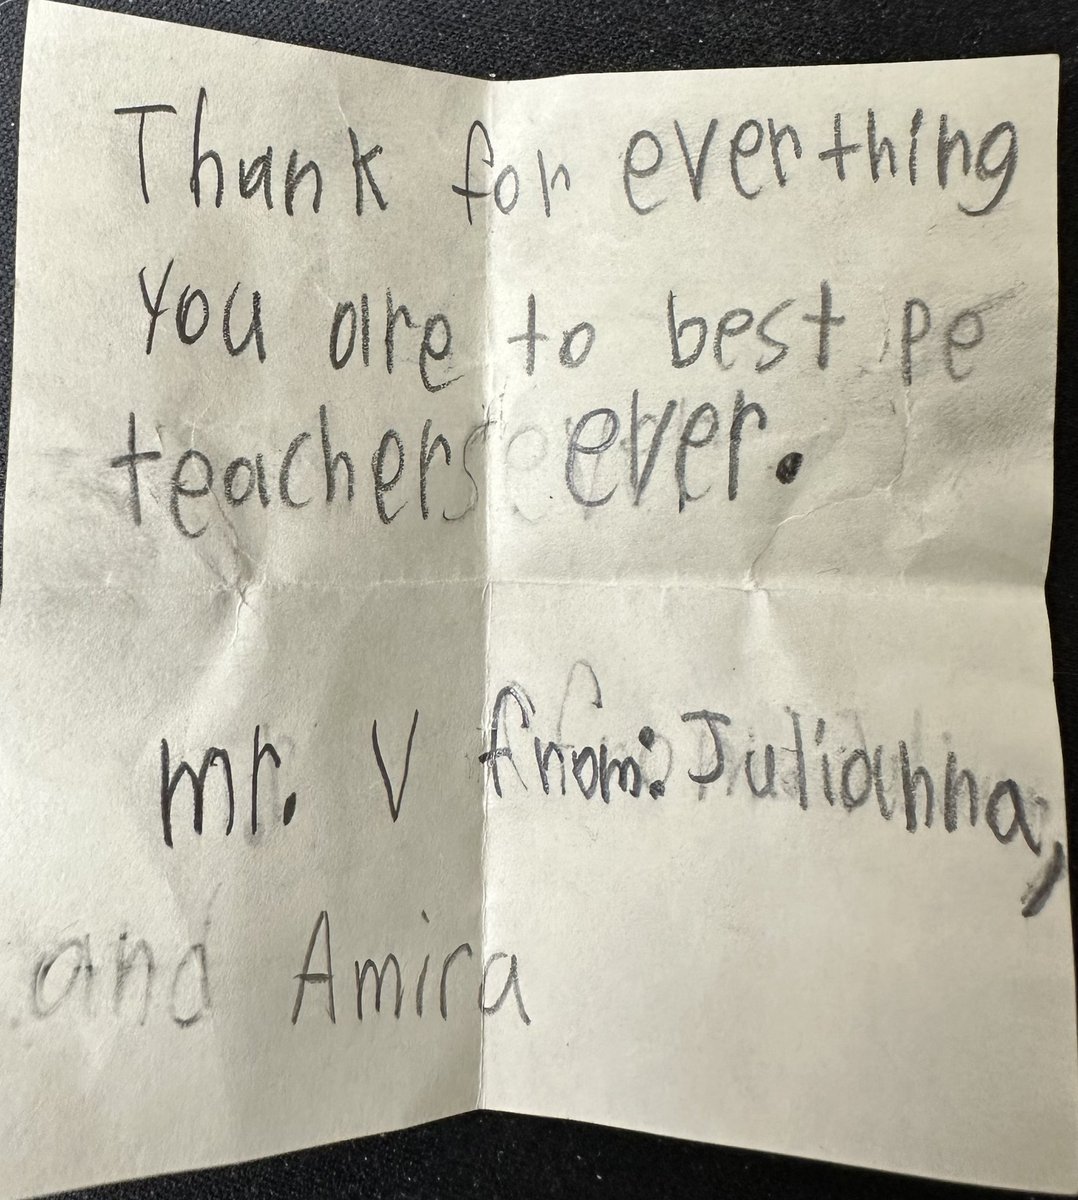 Thank for everthing
you are to best pe
teachers ever.
mr. V from: Julianna,
and Amira